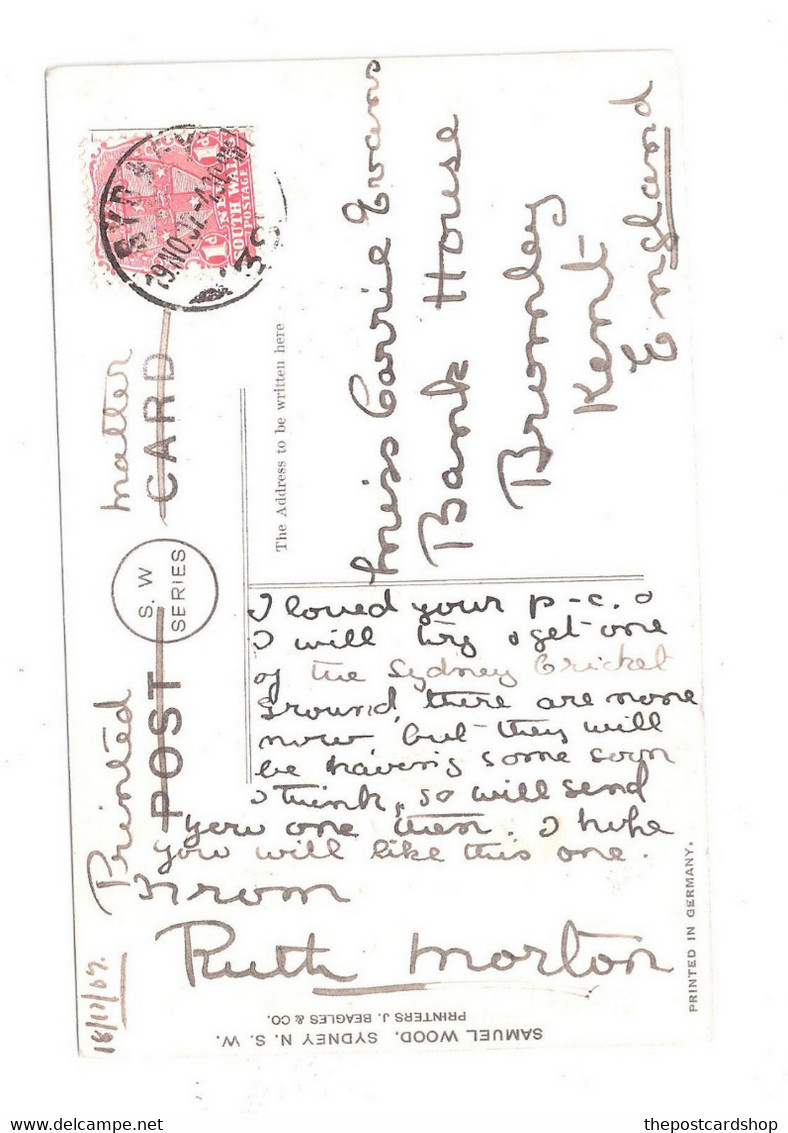 18/11/07.
Printed matter
POST CARD
S. W
SERIES
SYDNEY
19 NO. 07
SOUTH WALES
POSTAGE
1D 1D
The Address to be written here
Miss Carrie Evans
Bank House
Bromley
Kent
England
I loved your p-c.
I will try & get one
of the Sydney Cricket
Ground, there are none
now, but they will
be having some soon
I think, so will send
you one then. I hope
you will like this one.
From
Ruth Morton
SAMUEL WOOD. SYDNEY N. S. W.
PRINTERS J. BEAGLES & CO.
PRINTED IN GERMANY.
www.delcampe.net
thepostcardshop